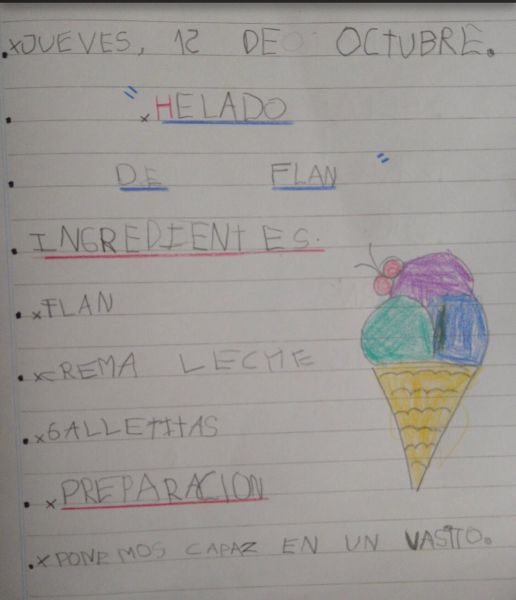 xJUEVES, 12 DE OCTUBRE.
" x HELADO
DE FLAN "
INGREDIENTES.
xFLAN
xCREMA LECHE
xGALLETITAS
xPREPARACION
xPONEMOS CAPAZ EN UN VASITO.